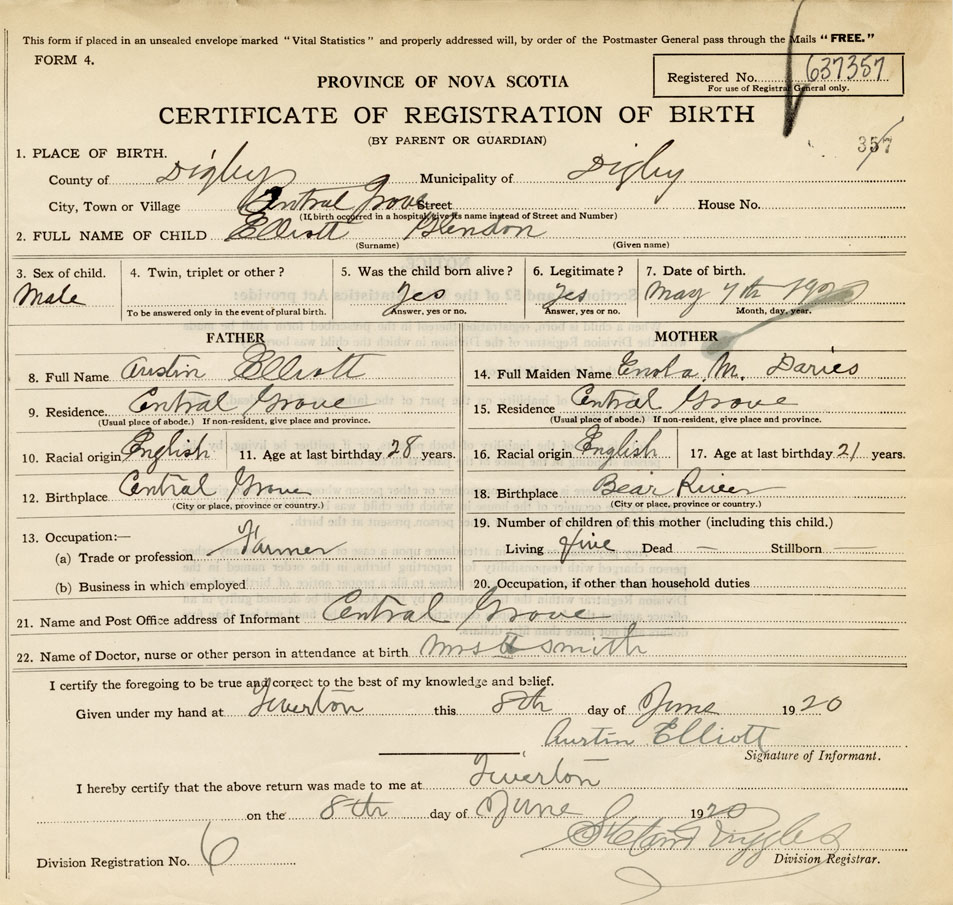 This form if placed in an unsealed envelope marked "Vital Statistics" and properly addressed will, by order of the Postmaster General pass through the Mails "FREE."
FORM 4.
Registered No. 637357
For use of Registrar General only.
PROVINCE OF NOVA SCOTIA
CERTIFICATE OF REGISTRATION OF BIRTH
(BY PARENT OR GUARDIAN)
357
1. PLACE OF BIRTH.
County of Digby Municipality of Digby
City, Town or Village Central Grove Street House No.
(If birth occurred in a hospital, give its name instead of Street and Number)
2. FULL NAME OF CHILD Elliott Glendon
(Surname) (Given name)
3. Sex of child. 4. Twin, triplet or other? 5. Was the child born alive? 6. Legitimate? 7. Date of birth.
Male Yes Yes May 7th
To be answered only in the event of plural birth. Answer, yes or no. Answer, yes or no. Month, day, year.
FATHER
8. Full Name Austin Elliott
9. Residence. Central Grove
(Usual place of abode.) If non-resident, give place and province.
10. Racial origin English 11. Age at last birthday 28 years.
12. Birthplace Central Grove
(City or place, province or country.)
13. Occupation:—
(a) Trade or profession Farmer
(b) Business in which employed
MOTHER
14. Full Maiden Name Enola M. Davies
15. Residence Central Grove
(Usual place of abode.) If non-resident, give place and province.
16. Racial origin English 17. Age at last birthday 21 years.
18. Birthplace Bear River
(City or place, province or country.)
19. Number of children of this mother (including this child.)
Living five Dead — Stillborn —
20. Occupation, if other than household duties
21. Name and Post Office address of Informant Central Grove
22. Name of Doctor, nurse or other person in attendance at birth Mrs H Smith
I certify the foregoing to be true and correct to the best of my knowledge and belief.
Given under my hand at Tiverton this 8th day of June 1920
Austin Elliott
Signature of Informant.
I hereby certify that the above return was made to me at Tiverton
on the 8th day of June 1920
Division Registration No. 6 Division Registrar.